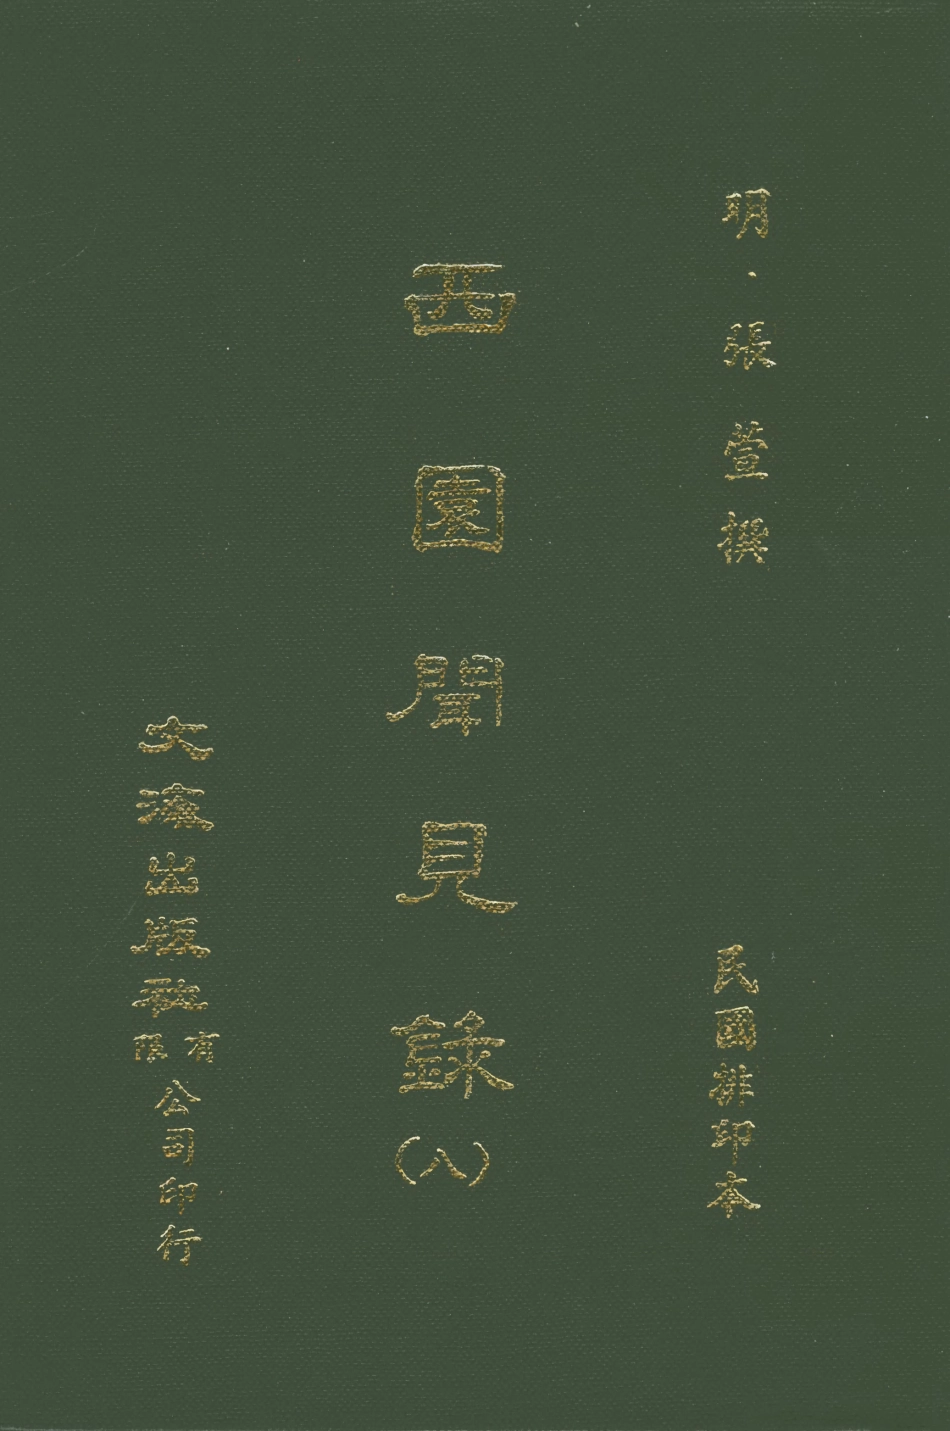 明·張萱撰
民國排印本
西園聞見錄(八)
文海出版社有限公司印行